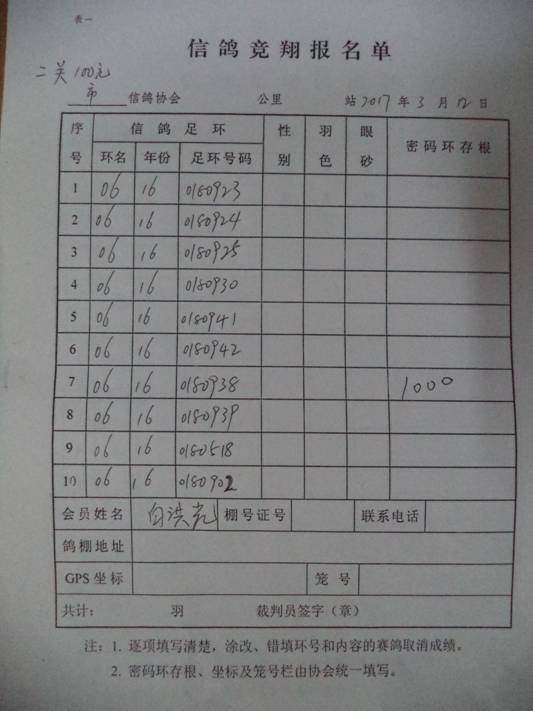 表一
信鸽竞翔报名单
二关100元
市 信鸽协会 公里 站2017年3月12日
序号 信鸽足环 性别 羽色 眼砂 密码环存根
环名 年份 足环号码
1 06 16 0180923
2 06 16 0180924
3 06 16 0180925
4 06 16 0180930
5 06 16 0180941
6 06 16 0180942
7 06 16 0180938 1000
8 06 16 0180939
9 06 16 0180518
10 06 16 0180902
会员姓名 白洪光 棚号证号 联系电话
鸽棚地址
GPS坐标 笼号
共计: 羽 裁判员签字(章)
注:1. 逐项填写清楚,涂改、错填环号和内容的赛鸽取消成绩。
2. 密码环存根、坐标及笼号栏由协会统一填写。